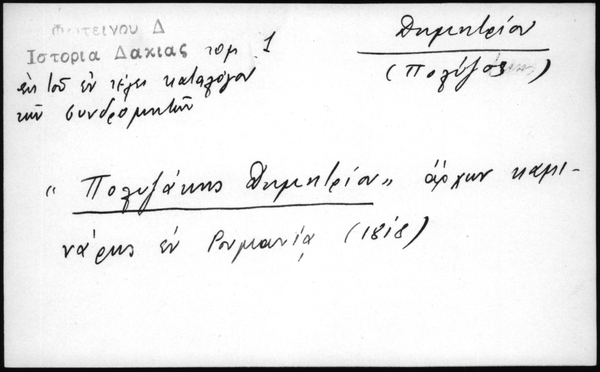 Φωτεινού Δ
Ιστορια Δακιας τομ 1
εκ του εν τέλει καταλόγου
των συνδρομητών
Δημητρίου
(Πολύζος )
"Πολυζάκης Δημητρίου" άρχων καμι-
νάρης εν Ρουμανία (1818)